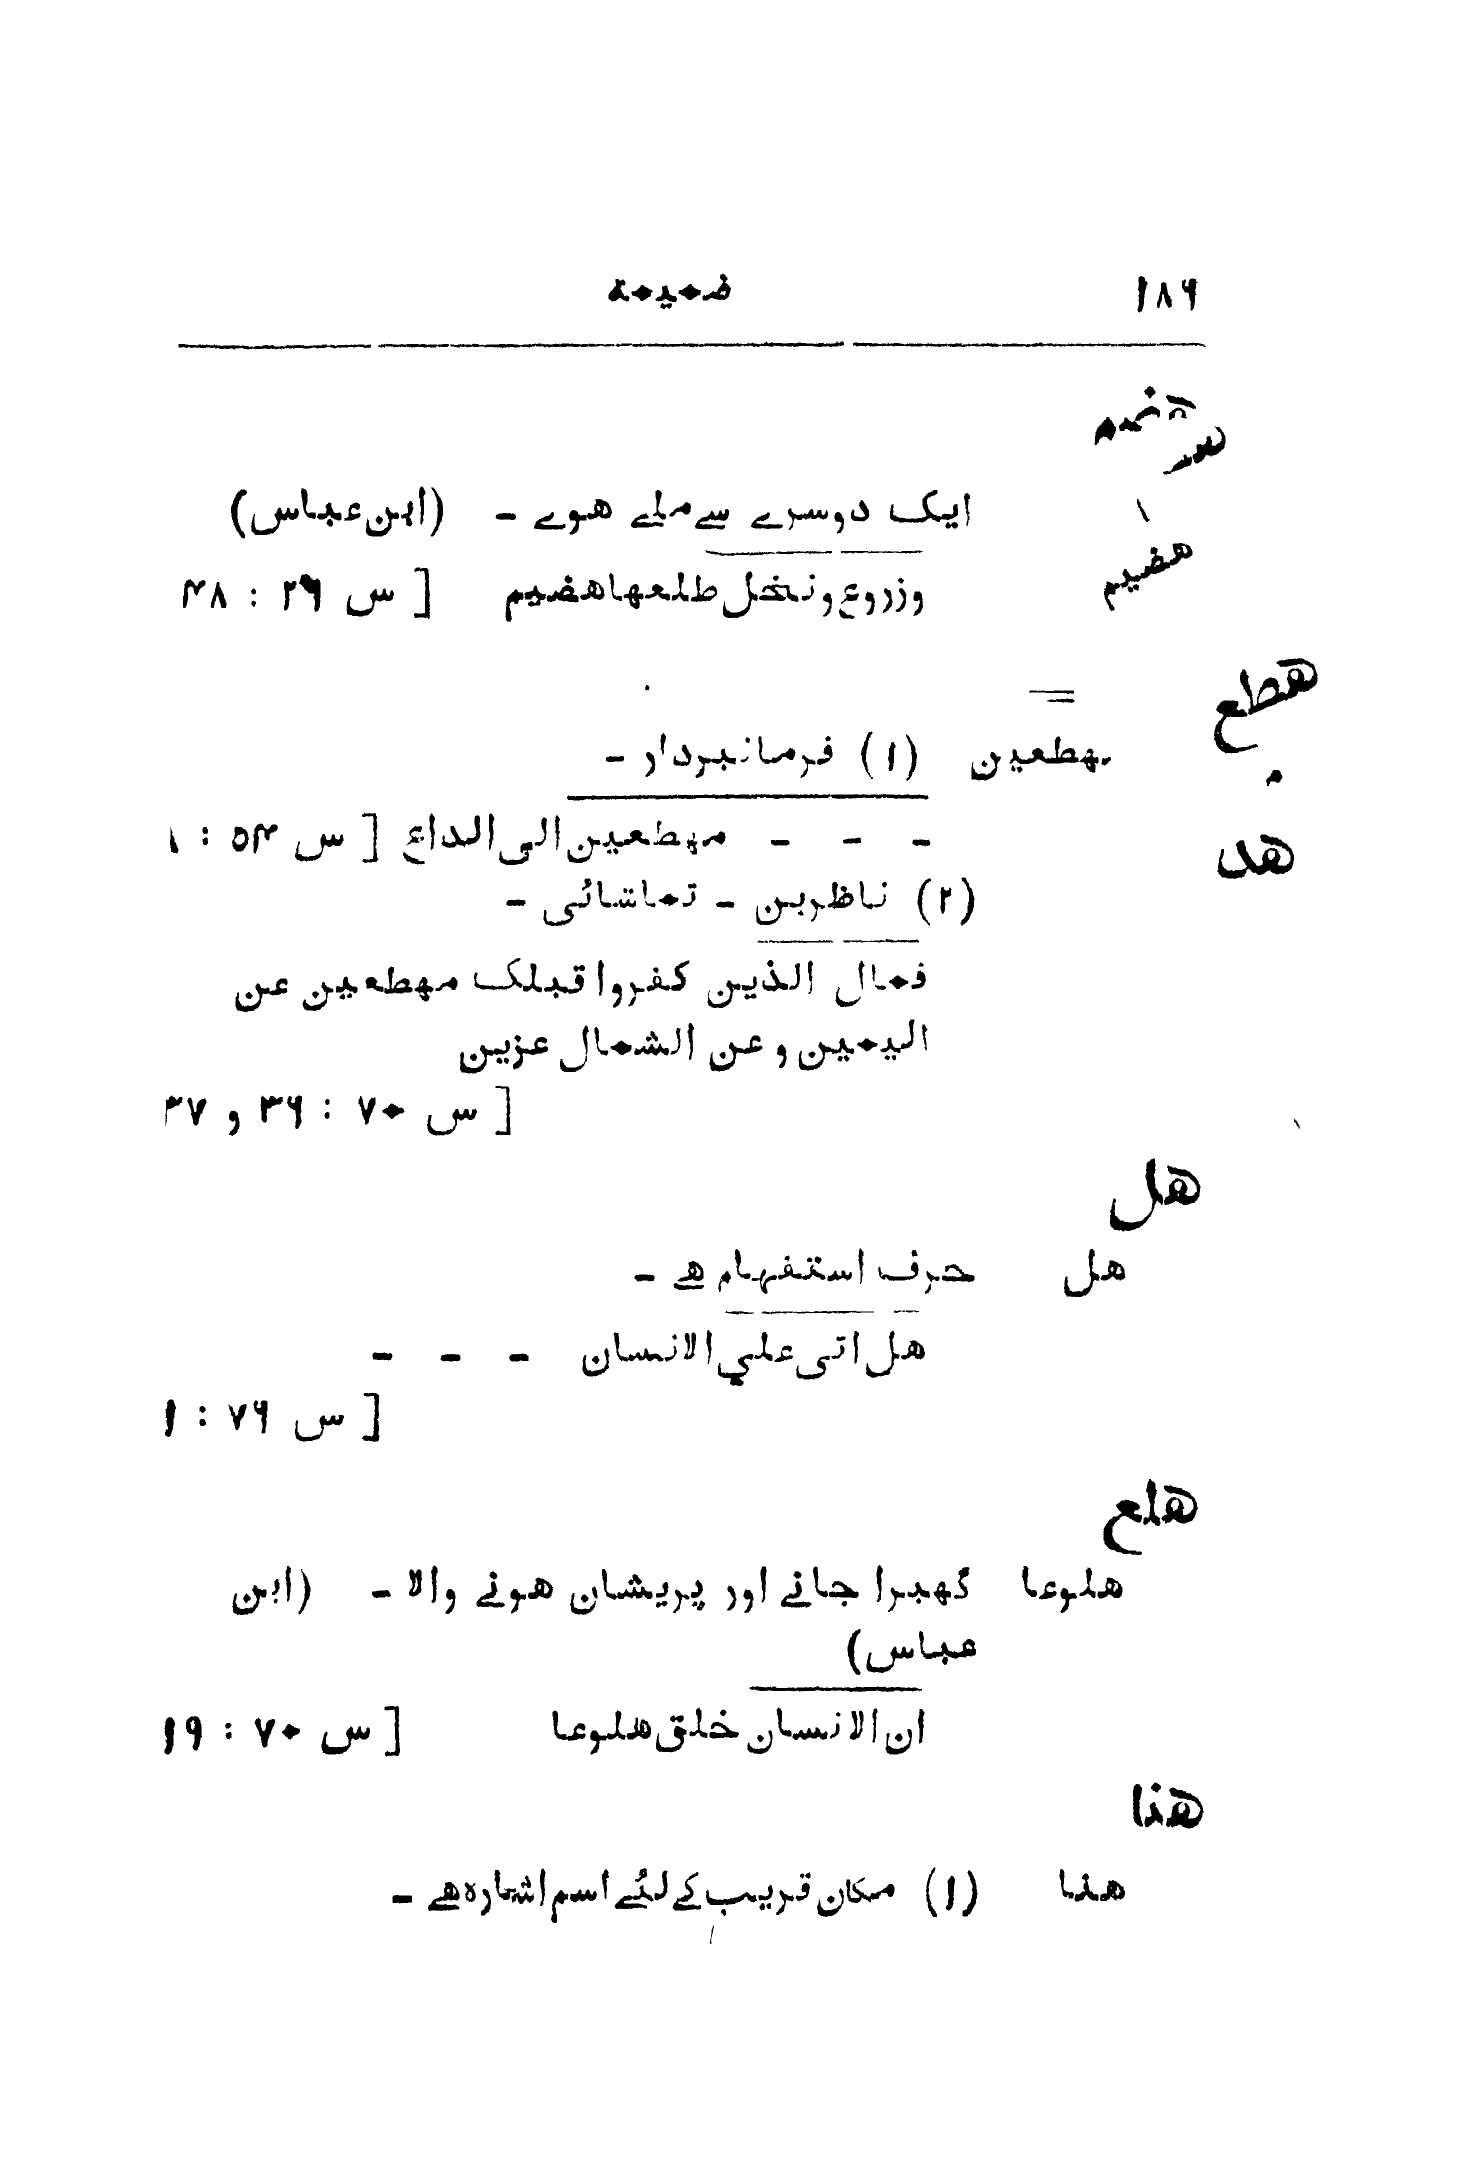 ۱۸۶ ضمیمة
هضم
ایک دوسرے سے ملے هوے - (ابن عباس)
هضیم
وزروع و نخل طلعها هضیم [ س ۲۶ : ۱۴۸
هطع
مهطعین (۱) فرمانبردار -
- - - مهطعین الی الداع [ س ۵۴ : ۸
هد
(۲) ناظرین - تماشائی -
فمال الذین کفروا قبلک مهطعین عن
الیمین و عن الشمال عزین
[ س ۷۰ : ۳۶ و ۳۷
هل
هل حرف استفهام هے -
هل اتی علي الانسان - - -
[ س ۷۶ : ۱
هلع
هلوعا گهبرا جانے اور پریشان هونے والا - (ابن
عباس)
ان الانسان خلق هلوعا [ س ۷۰ : ۱۹
هنا
هنا (۱) مکان قریب کے لئے اسم اشاره هے -